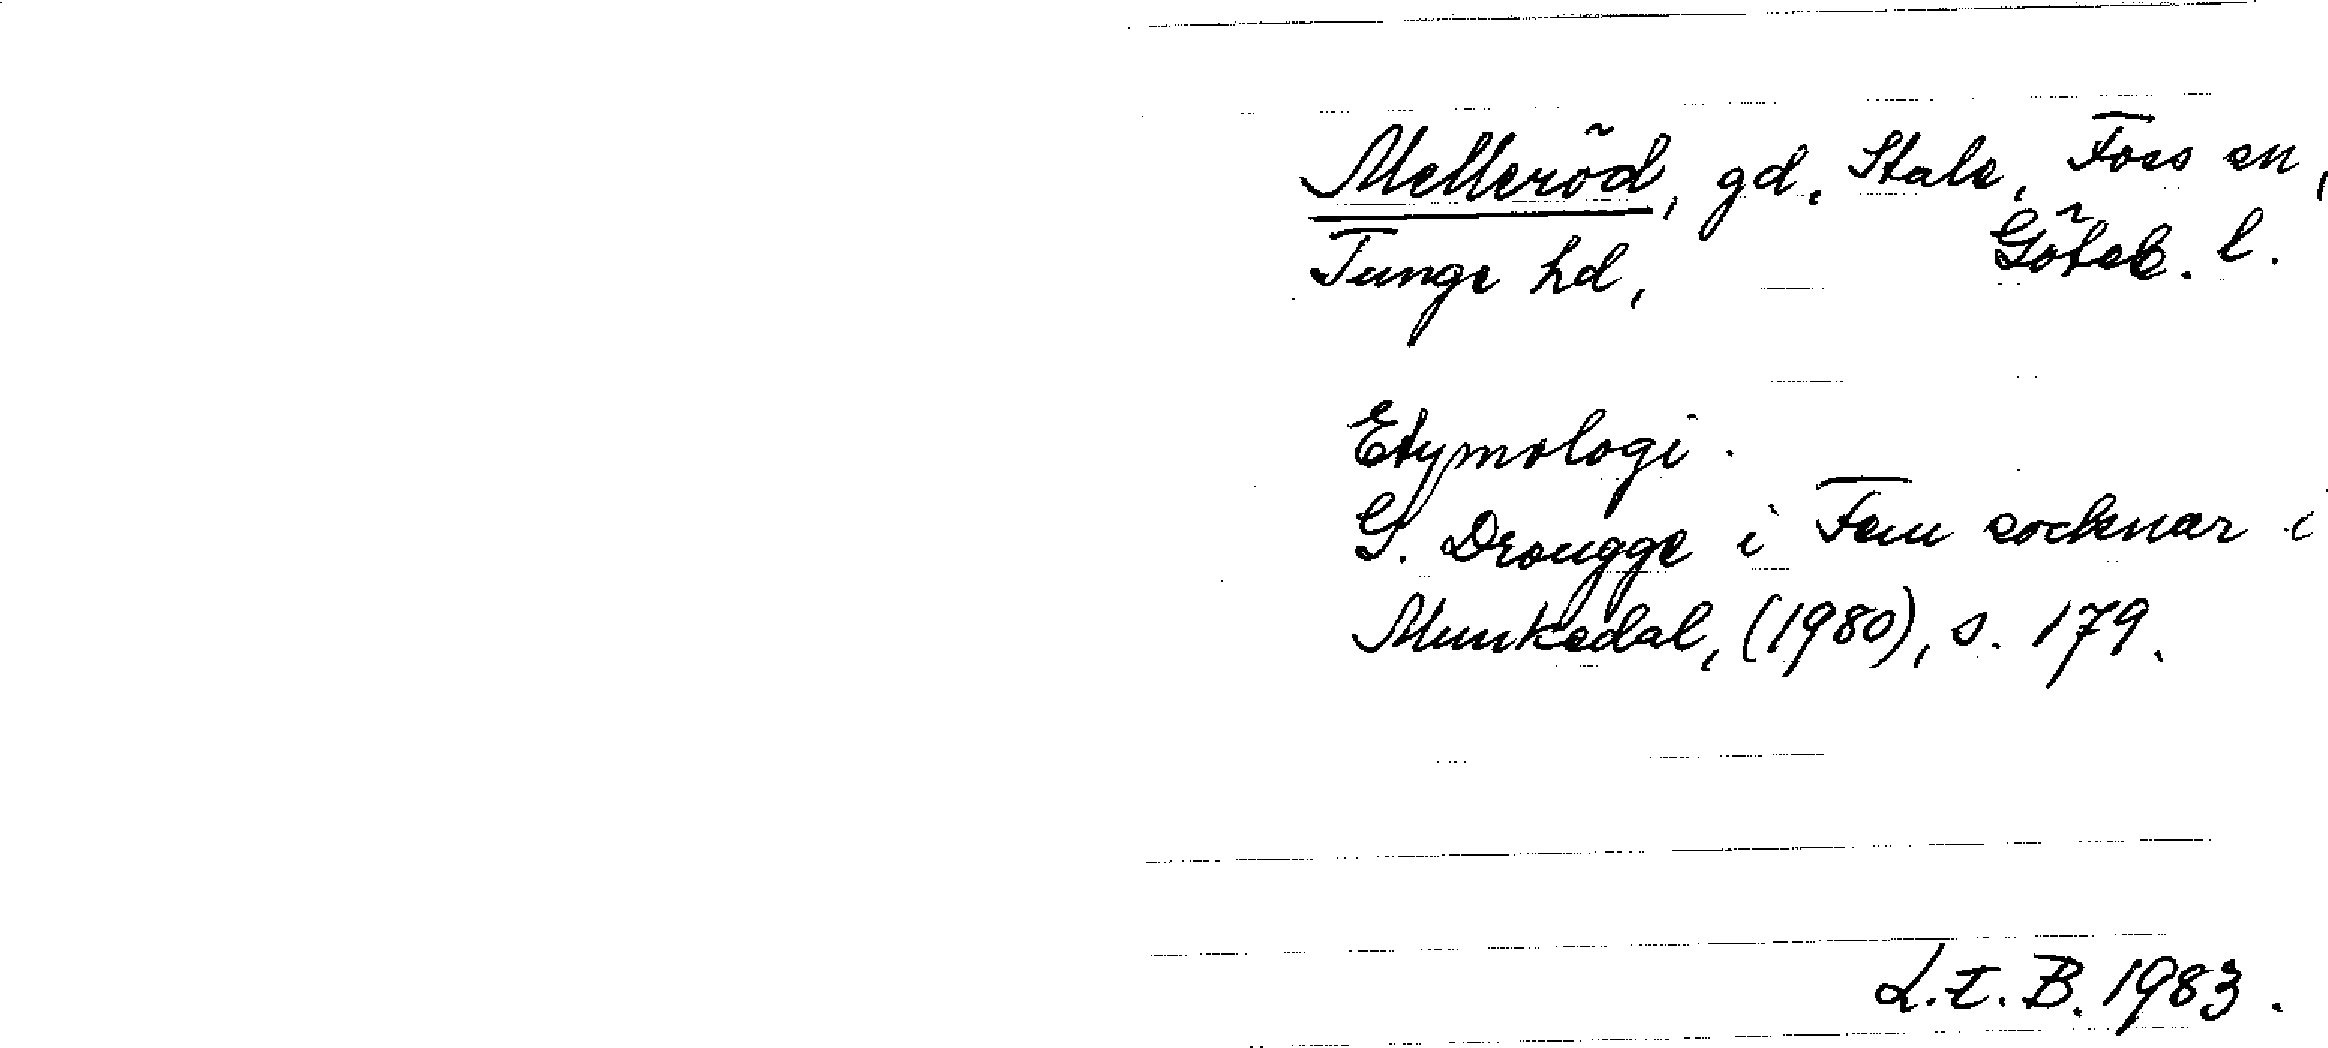 Melleröd, gd, Stale, Foss sn,
Tunge hd, Göteb. l.
Etymologi.
G. Drougge i Fem socknar i
Munkedal, (1980), s. 179.
L.E.B. 1983.